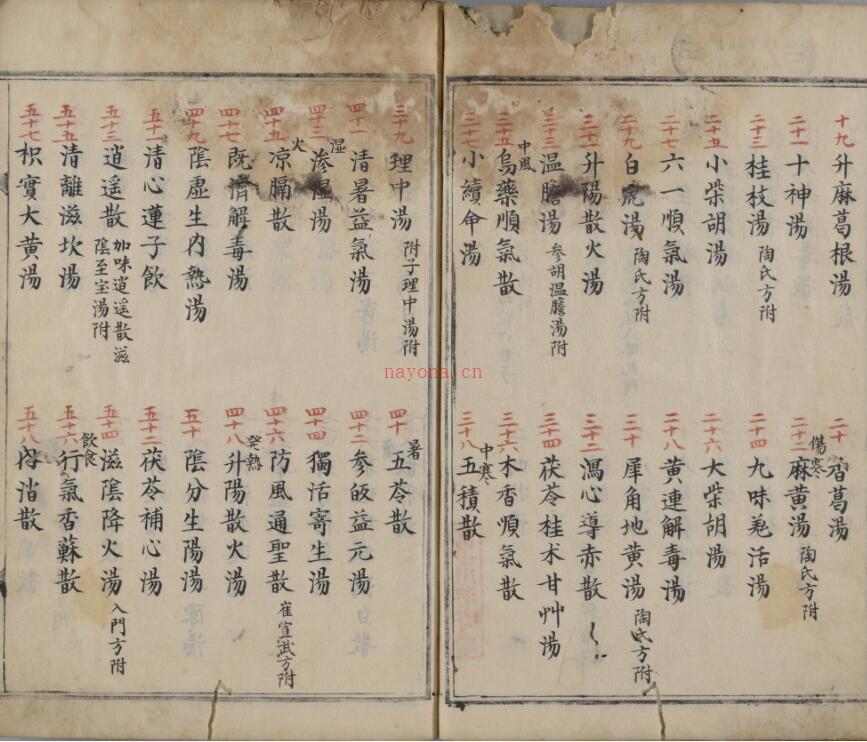 十九 升麻葛根湯
二十 香葛湯
二十一 十神湯
傷寒
二十二 麻黃湯 陶氏方附
二十三 桂枝湯 陶氏方附
二十四 九味羌活湯
二十五 小柴胡湯
二十六 大柴胡湯
二十七 六一順氣湯
二十八 黃連解毒湯
二十九 白虎湯 陶氏方附
三十 犀角地黃湯 陶氏方附
三十一 升陽散火湯
三十二 瀉心導赤散
三十三 温膽湯 參胡温膽湯附
三十四 茯苓桂朮甘艸湯
中風
三十五 烏藥順氣散
三十六 木香順氣散
三十七 小續命湯
中寒
三十八 五積散
三十九 理中湯 附子理中湯附
暑
四十 五苓散
四十一 清暑益氣湯
四十二 參皈益元湯
湿
四十三 滲湿湯
四十四 獨活寄生湯
火
四十五 凉膈散
四十六 防風通聖散 崔宣武方附
四十七 既濟解毒湯
癸熱
四十八 升陽散火湯
四十九 陰虛生內熱湯
五十 陰分生陽湯
五十一 清心蓮子飲
五十二 茯苓補心湯
五十三 逍遥散 加味逍遥散滋陰至宝湯附
五十四 滋陰降火湯 入門方附
五十五 清離滋坎湯
飲食
五十六 行氣香蘇散
五十七 枳實大黃湯
五十八 內消散
nayona.cn